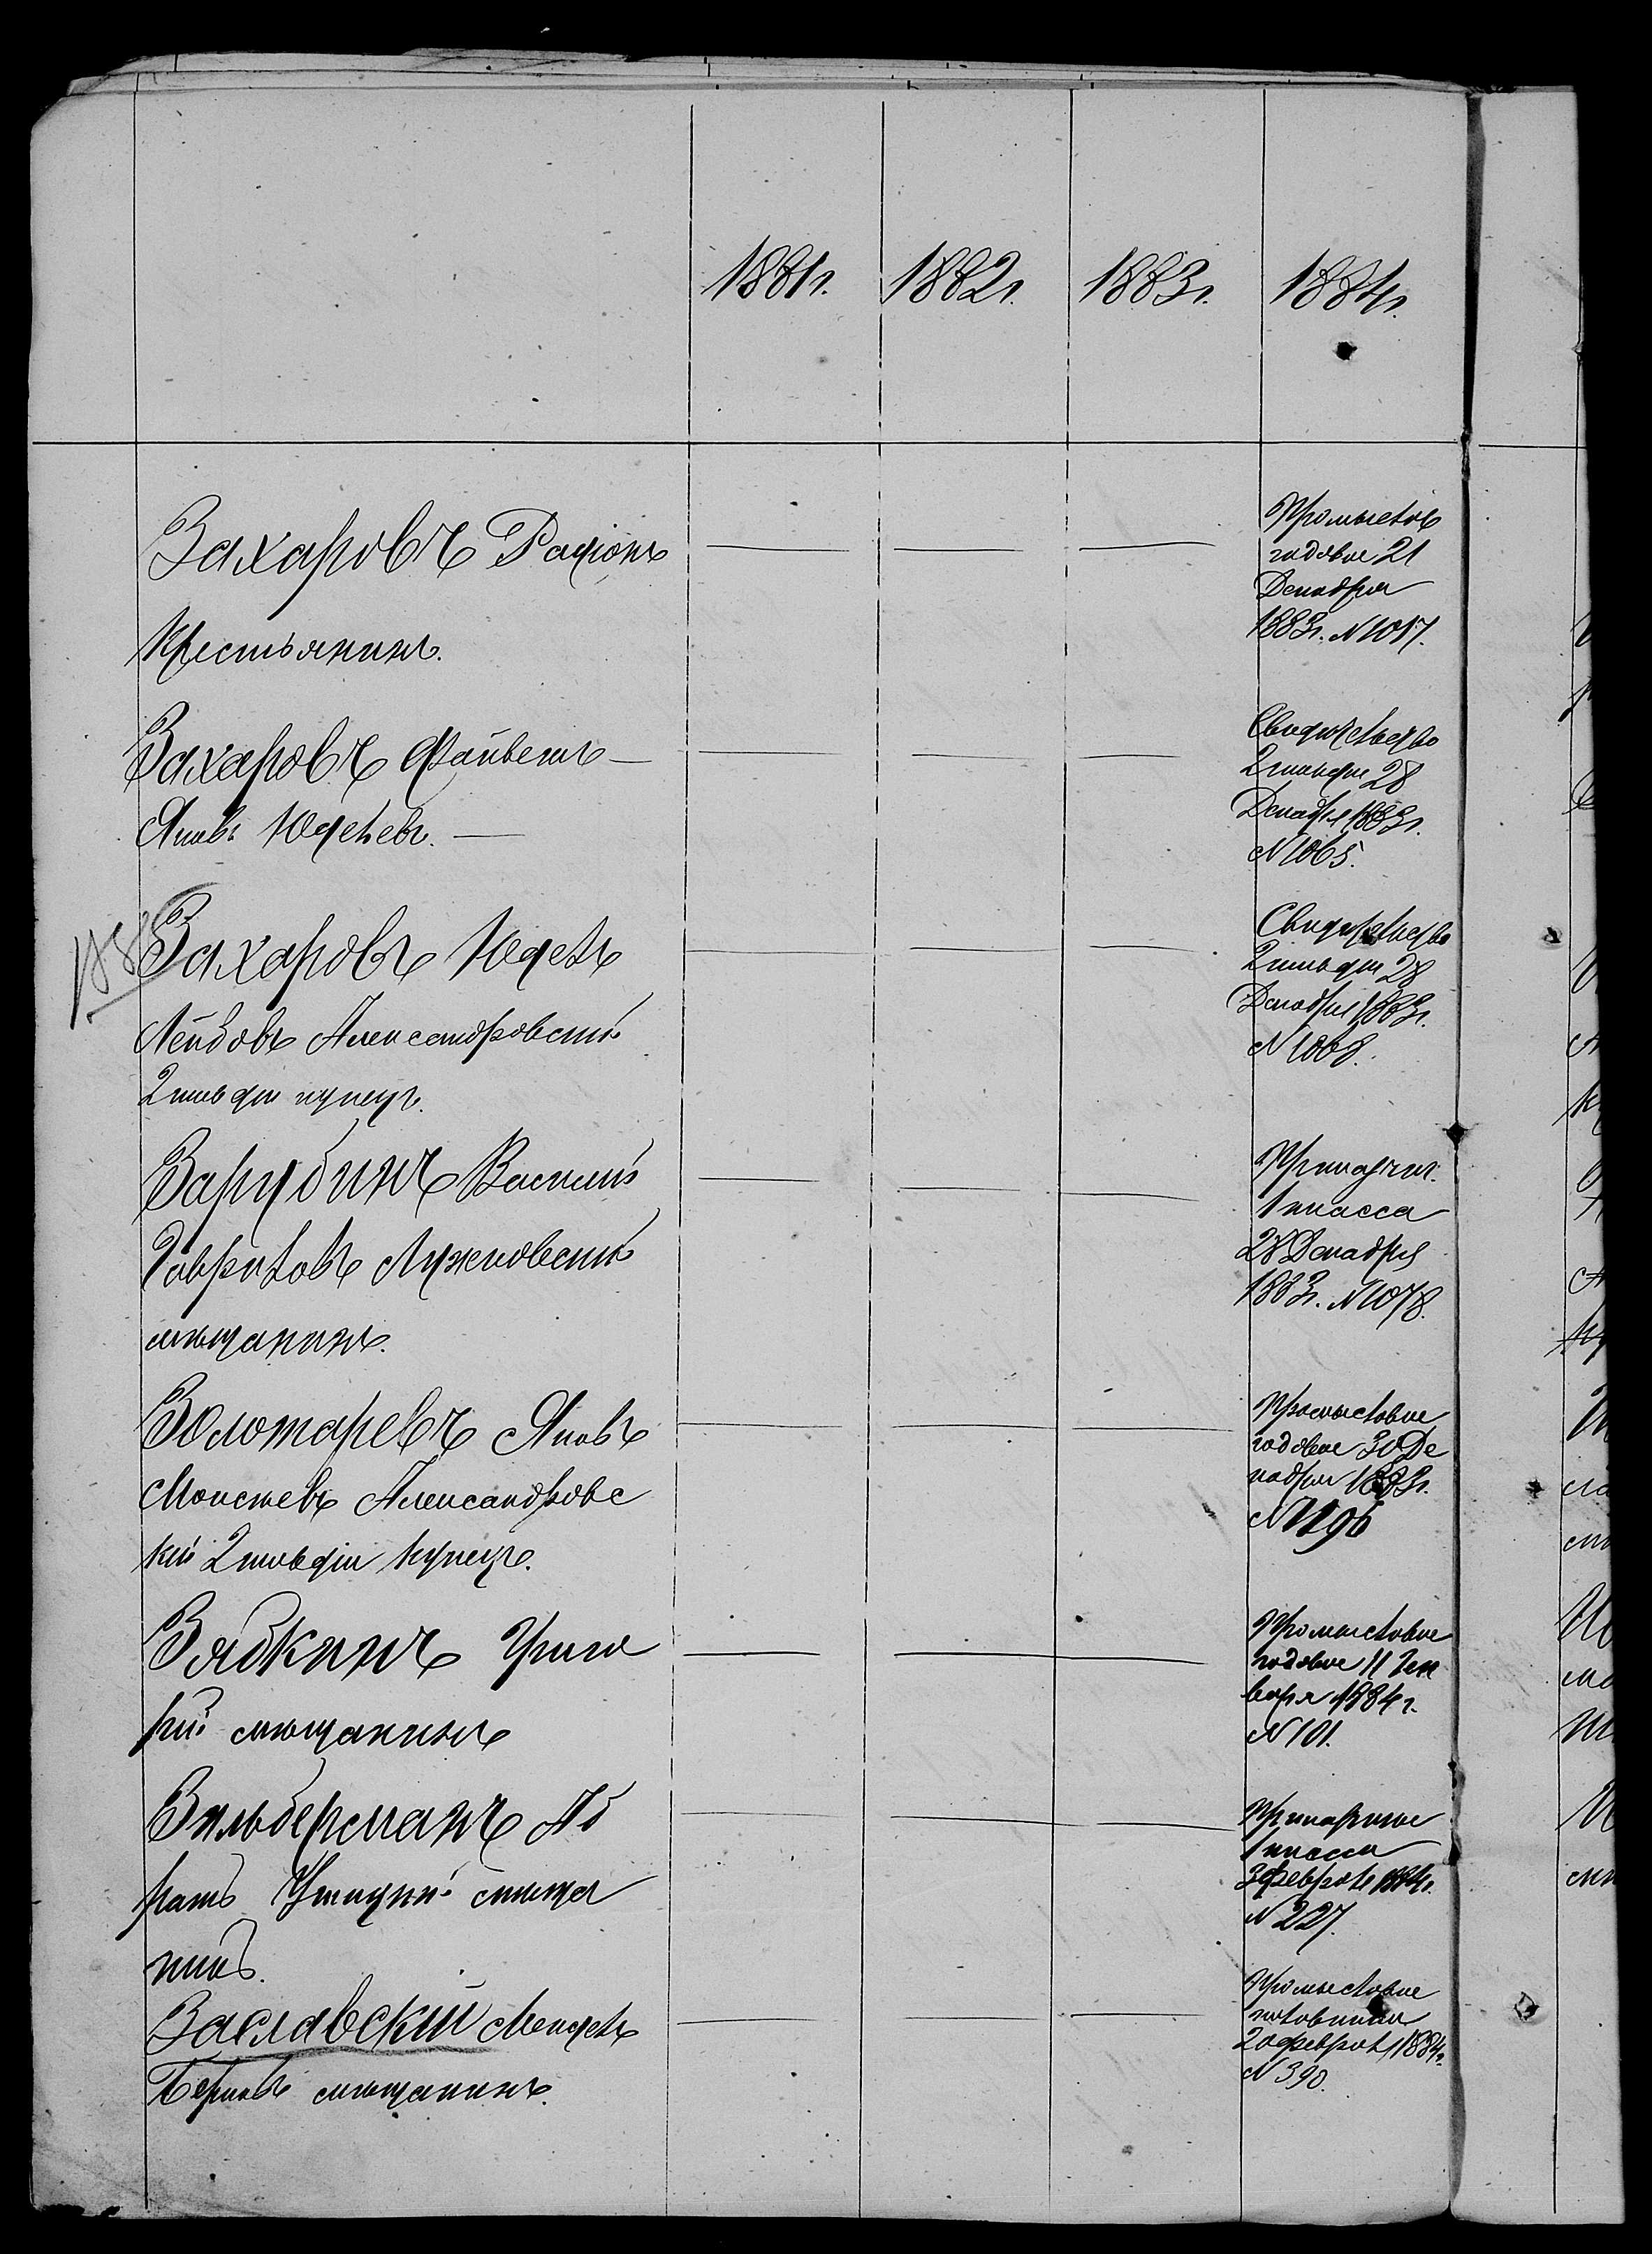 1881г. 1882г. 1883г. 1884г.
Захаровъ Радіонъ
Крестьянинъ.
Промыслов
годовое 21
Декабря
1883г. N 1017.
Захаровъ Файвель —
Яковъ Юделевъ. —
Свидѣтельство
2 гильдіи 28
Декабря 1883г.
N 1065.
188
Захаровъ Юдель
Лейбовъ Александровскій
2 гильдіи купецъ.
Свидѣтельство
2 гильдіи 28
Декабря 1883г.
N 1068.
Зарубинъ Василій
Гавриловъ
мѣщанинъ.
Приказчич.
1 класса
28 Декабря
1883г. N 1078.
Золотаревъ Яковъ
Моисеевъ Александровс
кій 2 гильдіи купецъ.
Промысловое
годовое 30 Де
кабря 1883г.
N 1196
Зябкинъ Григо
рій мѣщанинъ
Промысловое
годовое 11 Ген
варя 1884г.
N 101.
Зильберманъ Аб
рамъ Ушицкій мѣща
нинъ.
Приказчичье
1 класса
3 февраля 1884г.
N 227.
Заславскій Мендель
Берковъ мѣщанинъ.
Промысловое
20 февраля 1884г.
N 390.